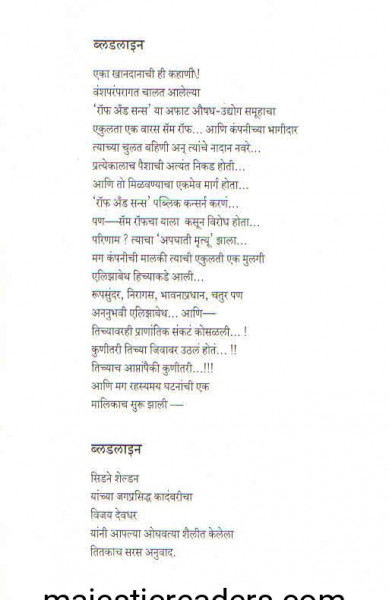 ब्लडलाइन
एका खानदानाची ही कहाणी!
वंशपरंपरागत चालत आलेल्या
'रॉफ अँड सन्स' या अफाट औषध-उद्योग समूहाचा
एकुलता एक वारस सॅम रॉफ... आणि कंपनीच्या भागीदार
त्याच्या चुलत बहिणी अन् त्यांचे नादान नवरे...
प्रत्येकालाच पैशाची अत्यंत निकड होती...
आणि तो मिळवण्याचा एकमेव मार्ग होता...
'रॉफ अँड सन्स' पब्लिक कन्सर्न करणं...
पण—सॅम रॉफचा याला कसून विरोध होता...
परिणाम ? त्याचा 'अपघाती मृत्यू' झाला...
मग कंपनीची मालकी त्याची एकुलती एक मुलगी
एलिझाबेथ हिच्याकडे आली...
रूपसुंदर, निरागस, भावनाप्रधान, चतुर पण
अननुभवी एलिझाबेथ... आणि—
तिच्यावरही प्राणांतिक संकटं कोसळली... !
कुणीतरी तिच्या जिवावर उठलं होतं... !!
तिच्याच आप्तांपैकी कुणीतरी...!!!
आणि मग रहस्यमय घटनांची एक
मालिकाच सुरू झाली —
ब्लडलाइन
सिडने शेल्डन
यांच्या जगप्रसिद्ध कादंबरीचा
विजय देवधर
यांनी आपल्या ओघवत्या शैलीत केलेला
तितकाच सरस अनुवाद.
majesticreaders.com